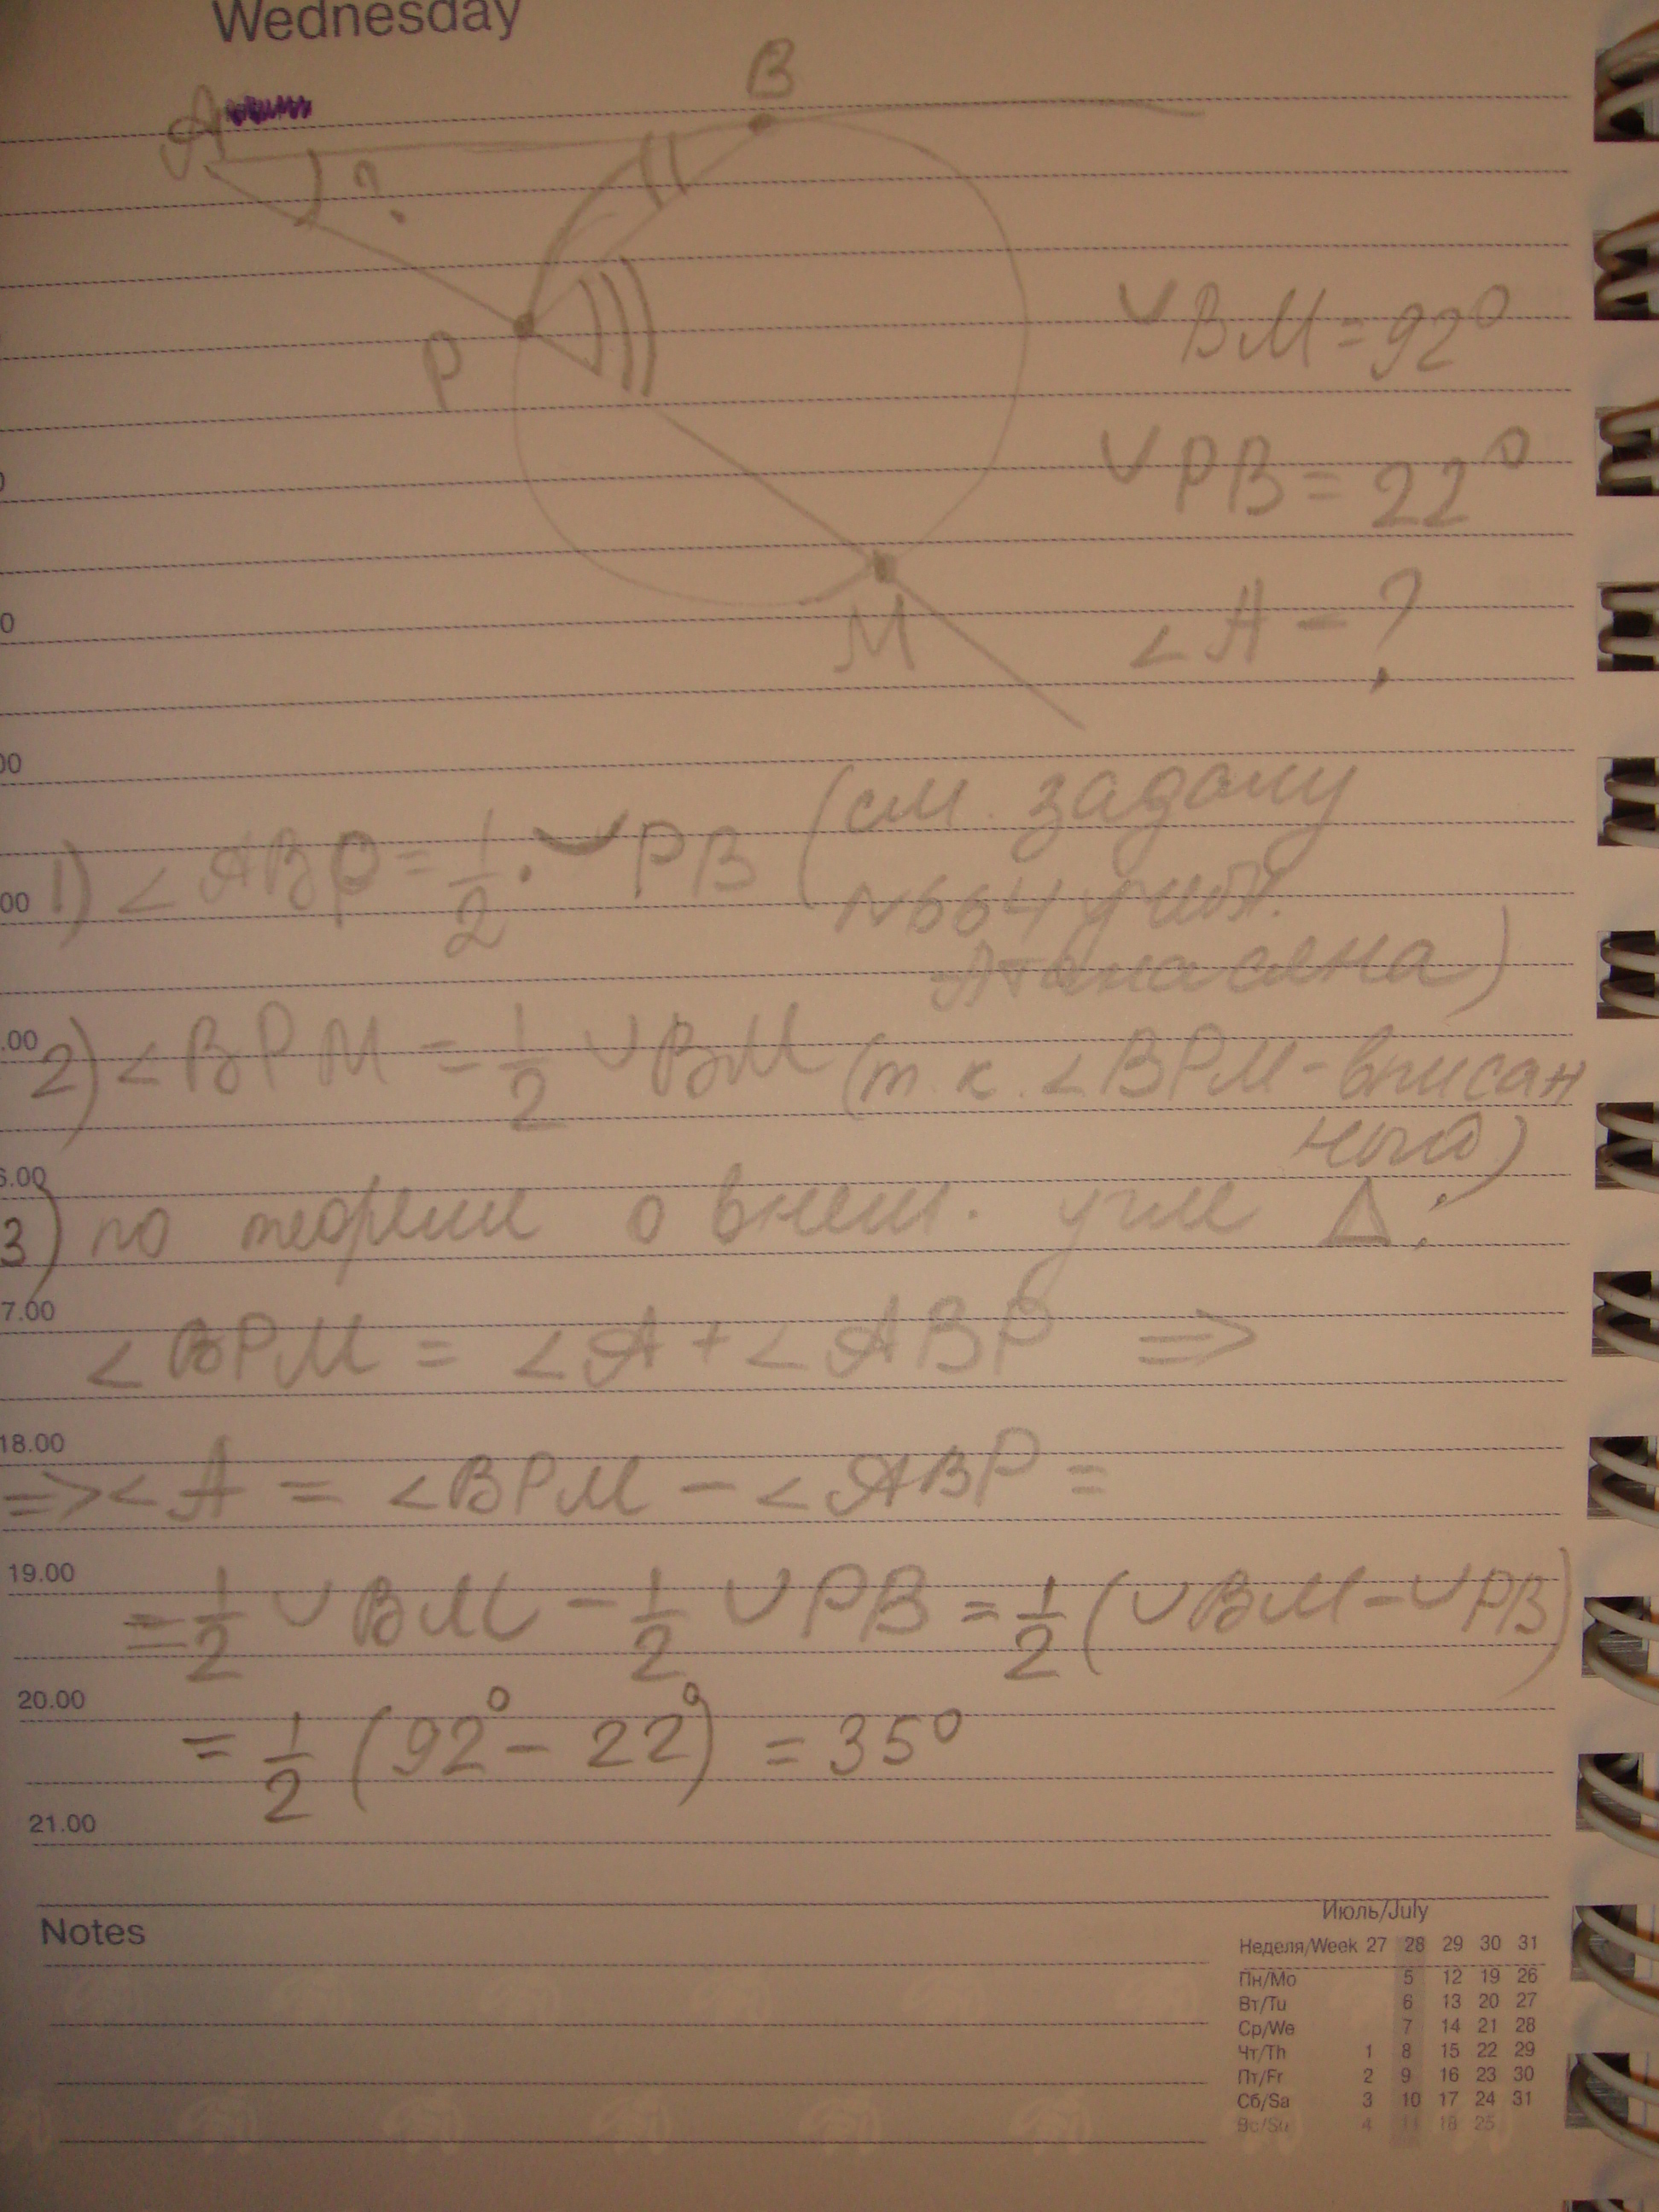 Wednesday
A
B
?
P
M
◡BM = 92°
◡PB = 22°
∠A - ?
1) ∠ABP = 1/2 · ◡PB (см. задачу
N664 учебн.
Атанасяна)
2) ∠BPM = 1/2 ◡BM (т.к. ∠BPM - вписан
ный)
3) по теореме о внеш. угле Δ:
∠BPM = ∠A + ∠ABP =>
=> ∠A = ∠BPM - ∠ABP =
= 1/2 ◡BM - 1/2 ◡PB = 1/2 (◡BM - ◡PB)
= 1/2 (92° - 22°) = 35°
7.00
18.00
19.00
20.00
21.00
Notes
Июль/July
Неделя/Week 27 28 29 30 31
Пн/Mo 5 12 19 26
Вт/Tu 6 13 20 27
Ср/We 7 14 21 28
Чт/Th 1 8 15 22 29
Пт/Fr 2 9 16 23 30
Сб/Sa 3 10 17 24 31
Вс/Su 4 11 18 25